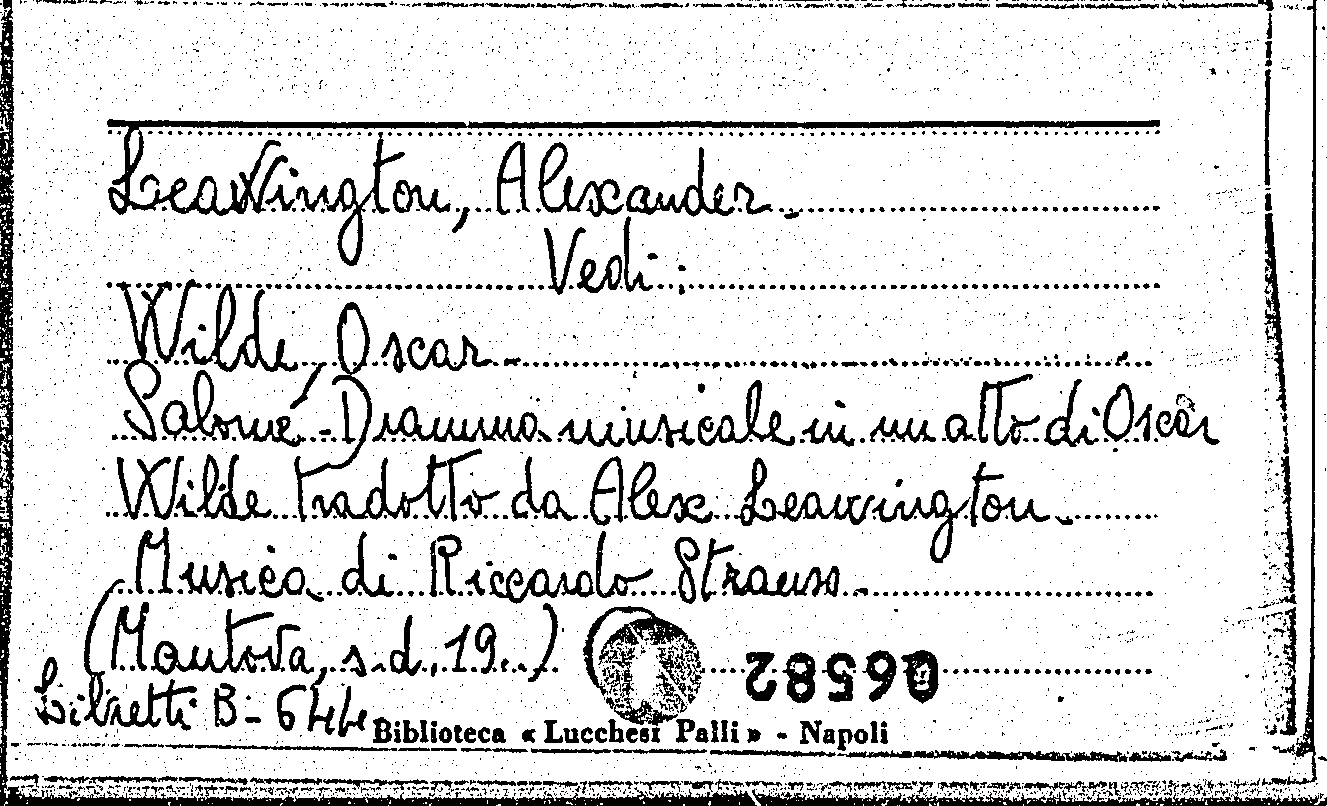 Leawington, Alexander.
Vedi:
Wilde, Oscar.
Salomé - Dramma musicale in un atto di Oscar
Wilde tradotto da Alex Leawington.
Musica di Riccardo Strauss.
(Mantova, s.d., 19..)
06582
Libretti B - 644
Biblioteca « Lucchesi Palli » - Napoli